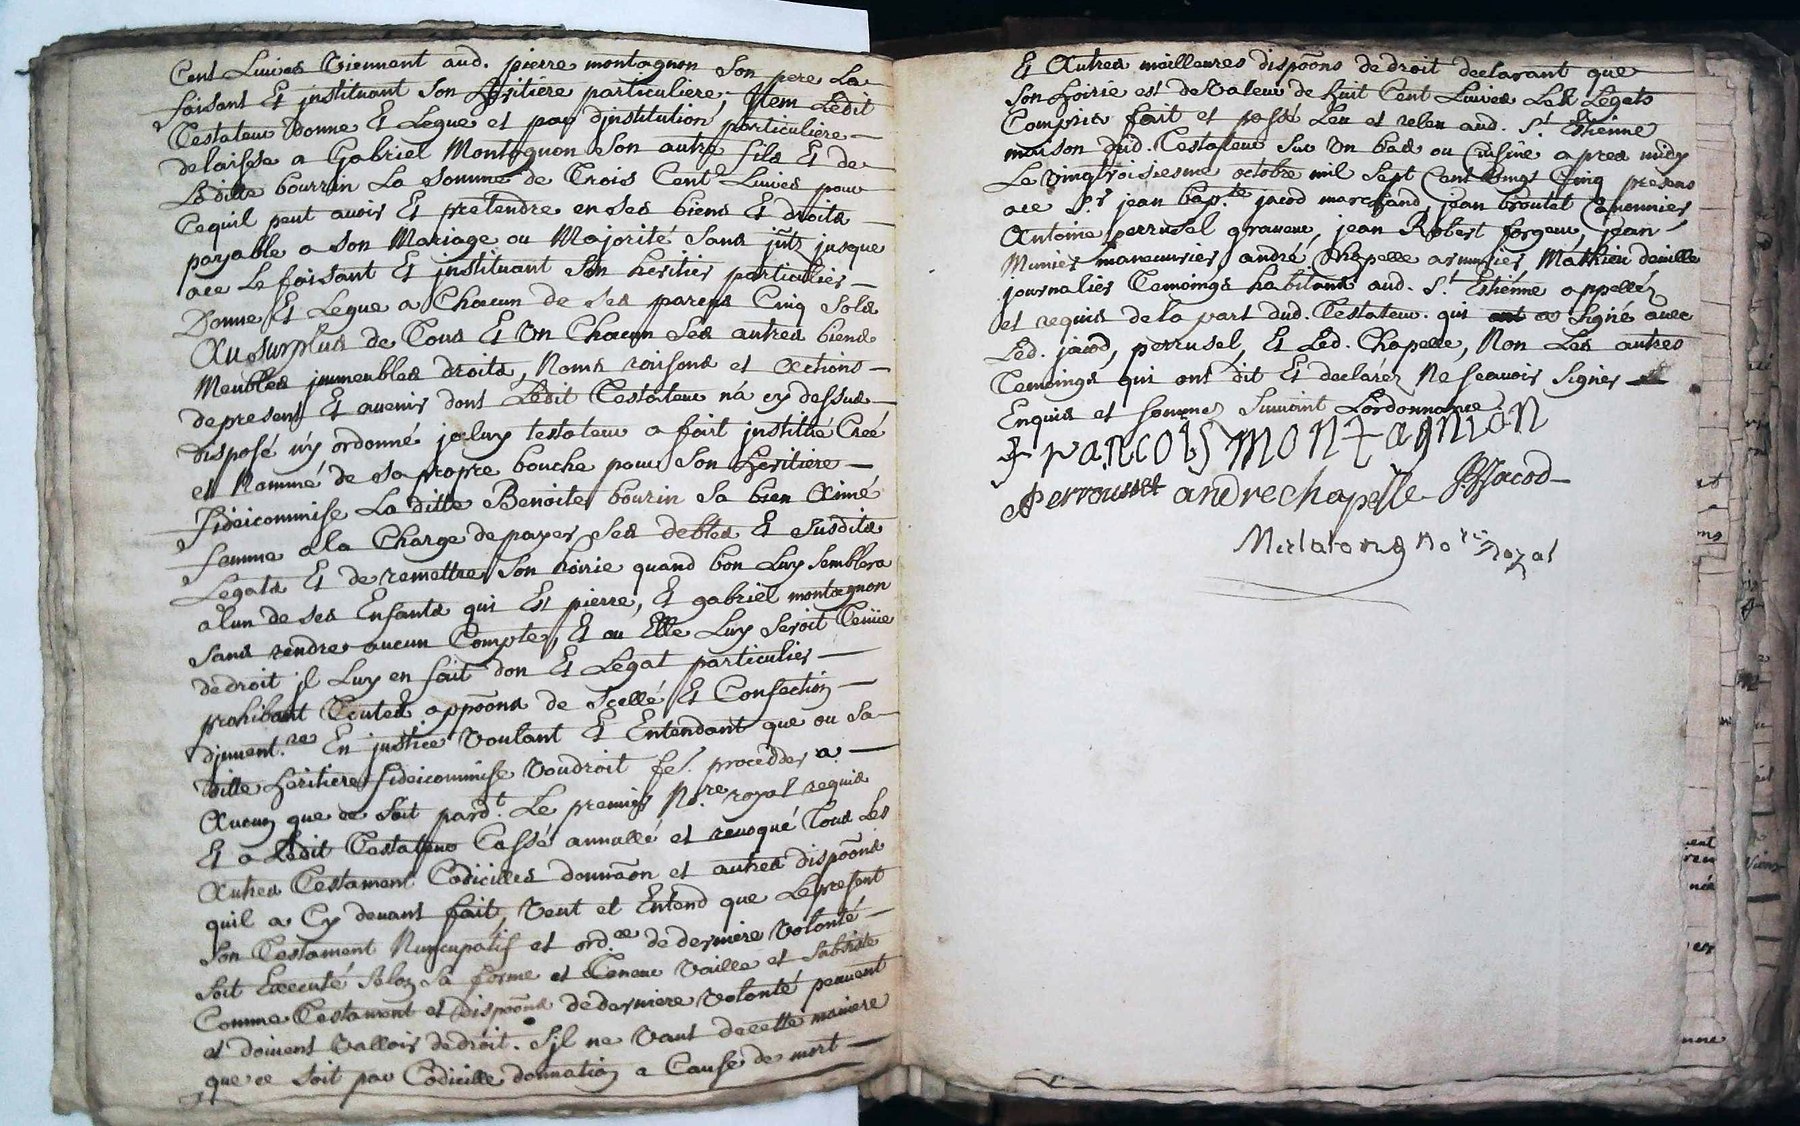 Cent Livres Viennent aud. pierre montagnon Son pere La
faisant Et jnstituant Son Heritiere particuliere. Jtem Ledit
Testateur Donne Et Legue et par djnstitution particuliere
delaisse a Gabriel Montagnon Son autre fils Et de
Laditte bourrin La Somme de Trois Cent Livres pour
Cequil peut avoir Et pretendre en Ses biens Et droits
payable a Son Mariage ou Majorité Sans jntz jusque
ace Le faisant Et jnstituant Son heritier particulier
Donne Et Legue a Chacun de Ses parens Cinq Sols
Au Surplus de Tous Et Un Chacun Ses autres biens
Meubles jmmeubles droits, Noms raisons et Actions
depresent Et avenir dont Ledit Testateur ná cy dessus
disposé n'y ordonné jceluy testateur a fait jnstitué Creé
et Nommé de Sa propre bouche pour Son Heritiere
fideicommise La ditte Benoite bourin Sa bien Aimé
femme a la Charge depayer Ses debtes Et Susdits
Legats Et de remettre Son hoirie quand bon Luy Semblera
a lun de Ses Enfants qui Est pierre, Et gabriel montagnon
Sans rendre aucun Compte, Et ou Elle Luy Seroit Tenüe
dedroit jl Luy en fait don Et Legat particulier
prohibant Toutes appoõns de Scellé Et Confection
djnvent.re En justice Voulant Et Entendant que ou Sa
ditte Heritiere fideicommise Voudroit fe. procedder a
Aucun que ce Soit pard.t Le premier No.re royal requis
Et a Ledit Testateur Cassé annullé et revoqué Tous Les
Autres Testament Codicilles donnaõn et autres dispoõns
quil a Cy devant fait, Veut et Entend que Le present
Son Testament Nuncupatif et ord.ce de derniere Volonté
Soit Executé Selon Sa forme et Teneur Vaille et Subsiste
Comme Testament et Dispoõns de derniere Volonté peuvent
et doivent Valloir dedroit. Sjl ne Vaut decette maniere
que ce Soit par Codicille donnation a Cause de mort
Et Autres meilleures dispoõns de droit declarant que
Son hoirie est de Valeur de huit Cent Livres Les Legats
Compris fait et passé Leu et releu aud. S.t Etienne
maison dud. Testateur Sur Un bas ou Cuisine apres midy
Le Vingtroisiesme octobre mil Sept Cent Vingt Cinq presens
ace S.rs jean bap.te jacod marchand jean broutet Canonnier
Antoine perrusel graveur, jean Robert forgeur, jean
Munier maneuvrier, andré Chapelle armurier, Mathieu deville
journalier Temoings habitans aud. S.t Estienne appellez
et requis de la part dud. Testateur. qui a Signé avec
Led. jacod, perrusel, Et Led. Chapelle, Non Les autres
Temoings qui ont dit Et declarez Ne Scavoir Signer
Enquis et Sommez Suivant Lordonnance
francois montagnion
A Perrousset andre chapelle JBJacod
No.re Royal